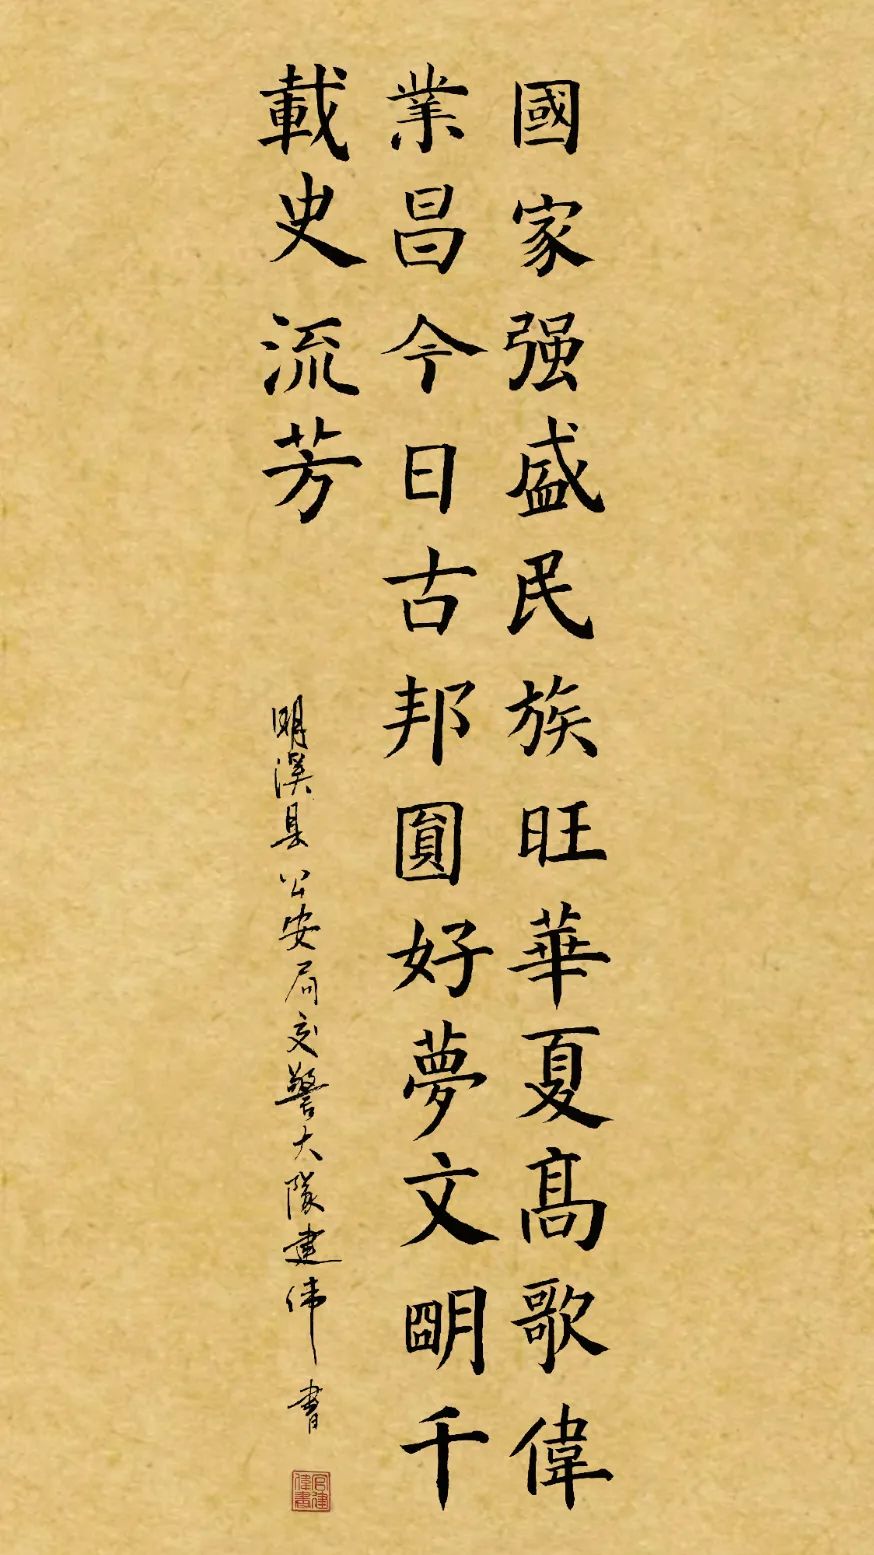 國家强盛民族旺華夏髙歌偉
業昌今日古邦圓好夢文朙千
載史流芳
明溪县公安局交警大隊建伟書
官建偉書